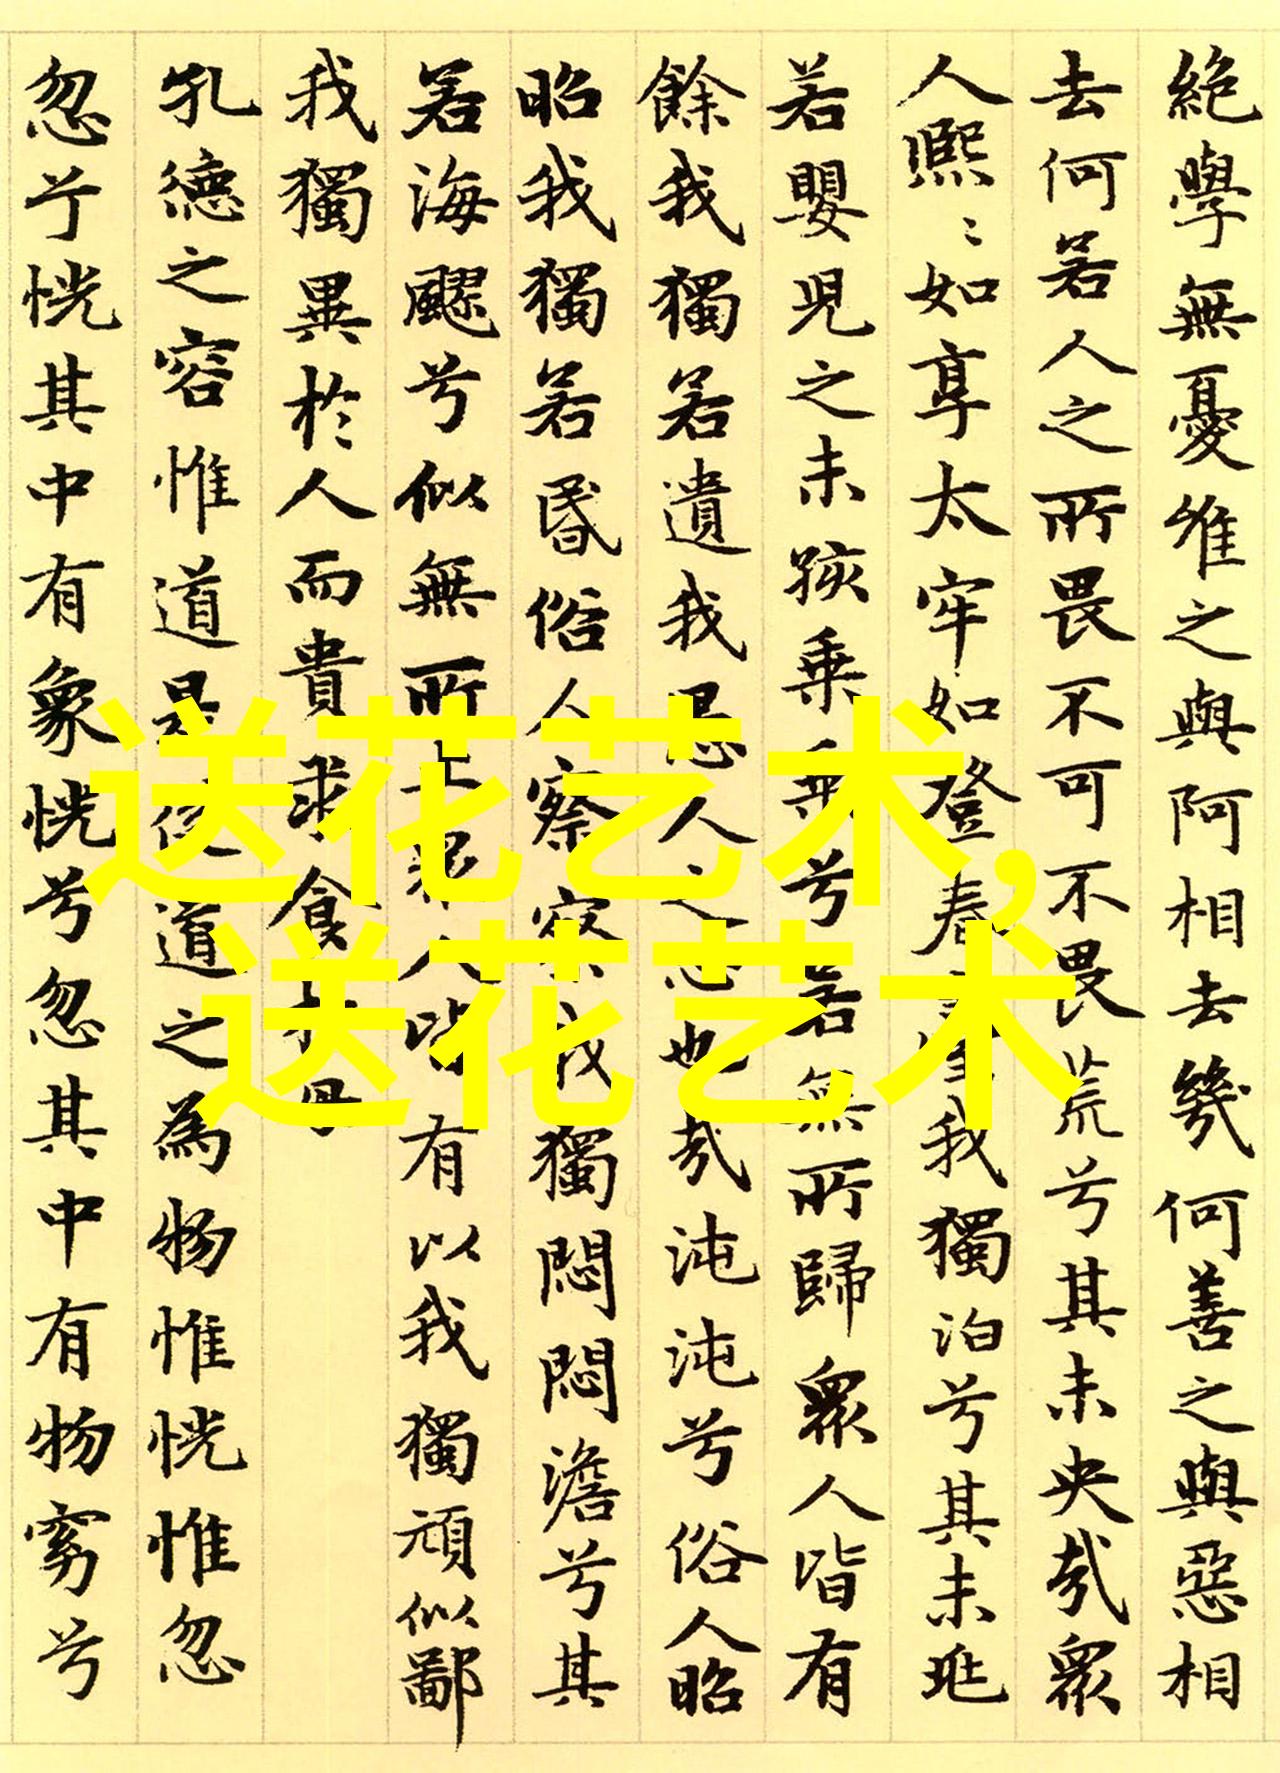 絶學無憂唯之與阿相去幾何善之與惡相
去何若人之所畏不可不畏荒兮其未央哉眾
人熙〻如享太牢如登春臺我獨泊兮其未兆
若嬰兒之未孩乘乘兮若無所歸眾人皆有
餘我獨若遺我愚人之心也哉沌沌兮俗人昭
昭我獨若昏俗人察察我獨悶悶澹兮其
若海飂兮似無所止眾人皆有以我獨頑似鄙
我獨異於人而貴求食於母
孔德之容惟道是從道之為物惟恍惟忽
忽兮恍其中有象恍兮忽其中有物窈兮
送花艺术,
送花艺术